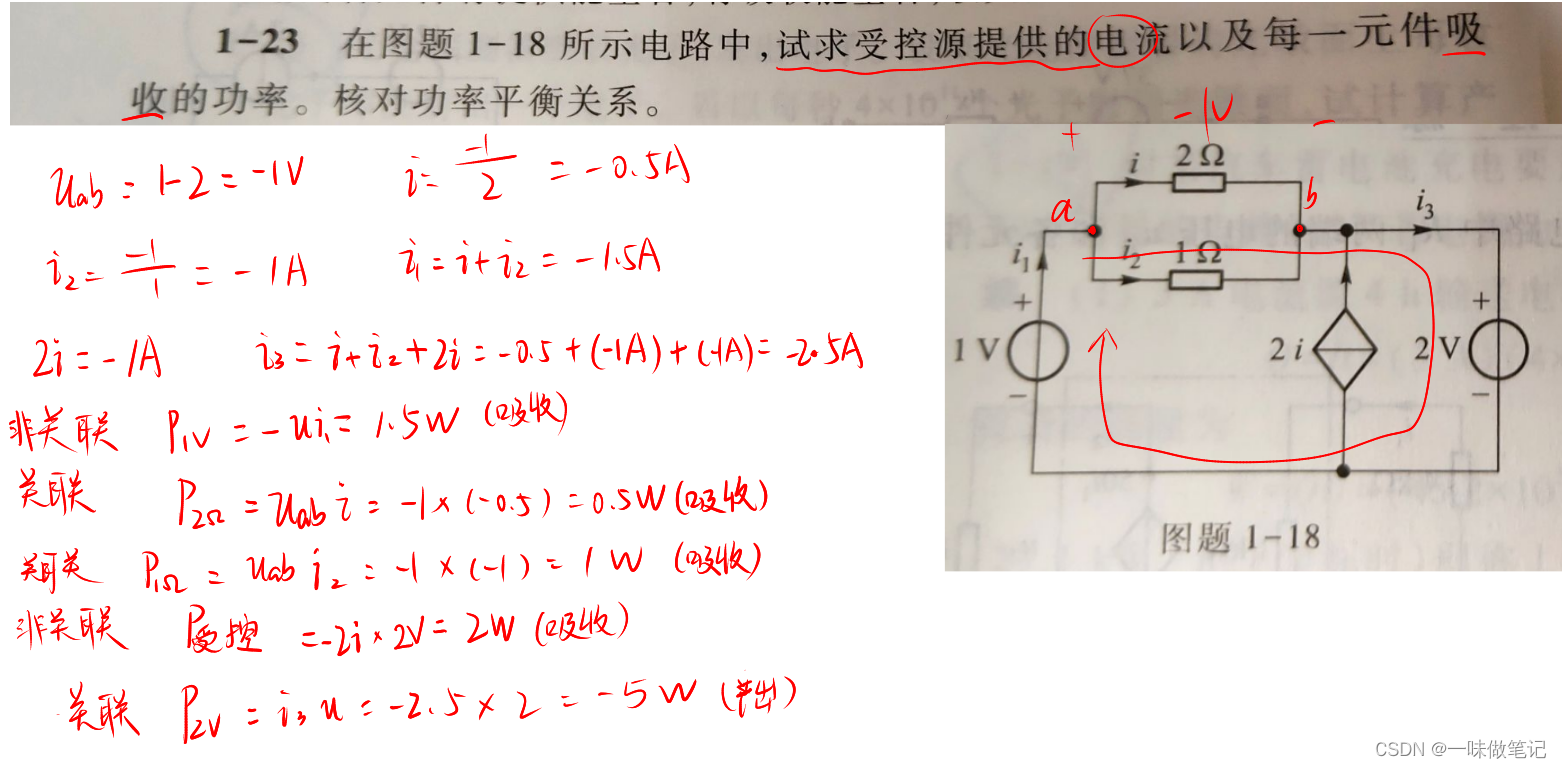 1-23 在图题 1-18 所示电路中,试求受控源提供的电流以及每一元件吸
收的功率。核对功率平衡关系。
uab = 1-2 = -1V i = -1/2 = -0.5A
i2 = -1/1 = -1A i1 = i+i2 = -1.5A
2i = -1A i3 = i+i2+2i = -0.5+(-1A)+(-1A) = -2.5A
非关联 P1V = -ui1 = 1.5W (吸收)
关联 P2Ω = uab i = -1×(-0.5) = 0.5W (吸收)
关联 P1Ω = uab i2 = -1×(-1) = 1W (吸收)
非关联 P受控 = -2i×2V = 2W (吸收)
关联 P2V = i3 u = -2.5×2 = -5W (产出)
+ -1V -
i 2Ω
a b i3
i1 i2 1Ω
+ +
1V 2i 2V
- -
图题 1-18
CSDN @一味做笔记